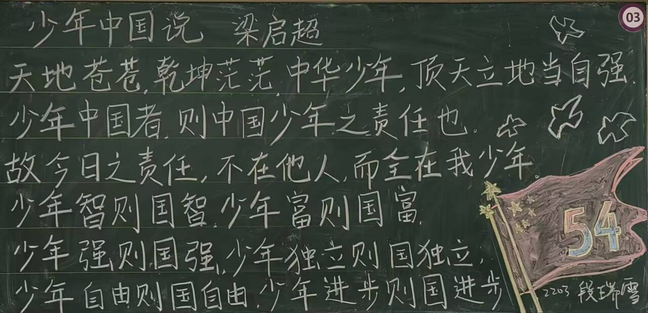 03
少年中国说 梁启超
天地苍苍,乾坤茫茫,中华少年,顶天立地当自强.
少年中国者,则中国少年之责任也.
故今日之责任,不在他人,而全在我少年.
少年智则国智,少年富则国富,
少年强则国强,少年独立则国独立,
少年自由则国自由,少年进步则国进步
54
2203 段瑞雪